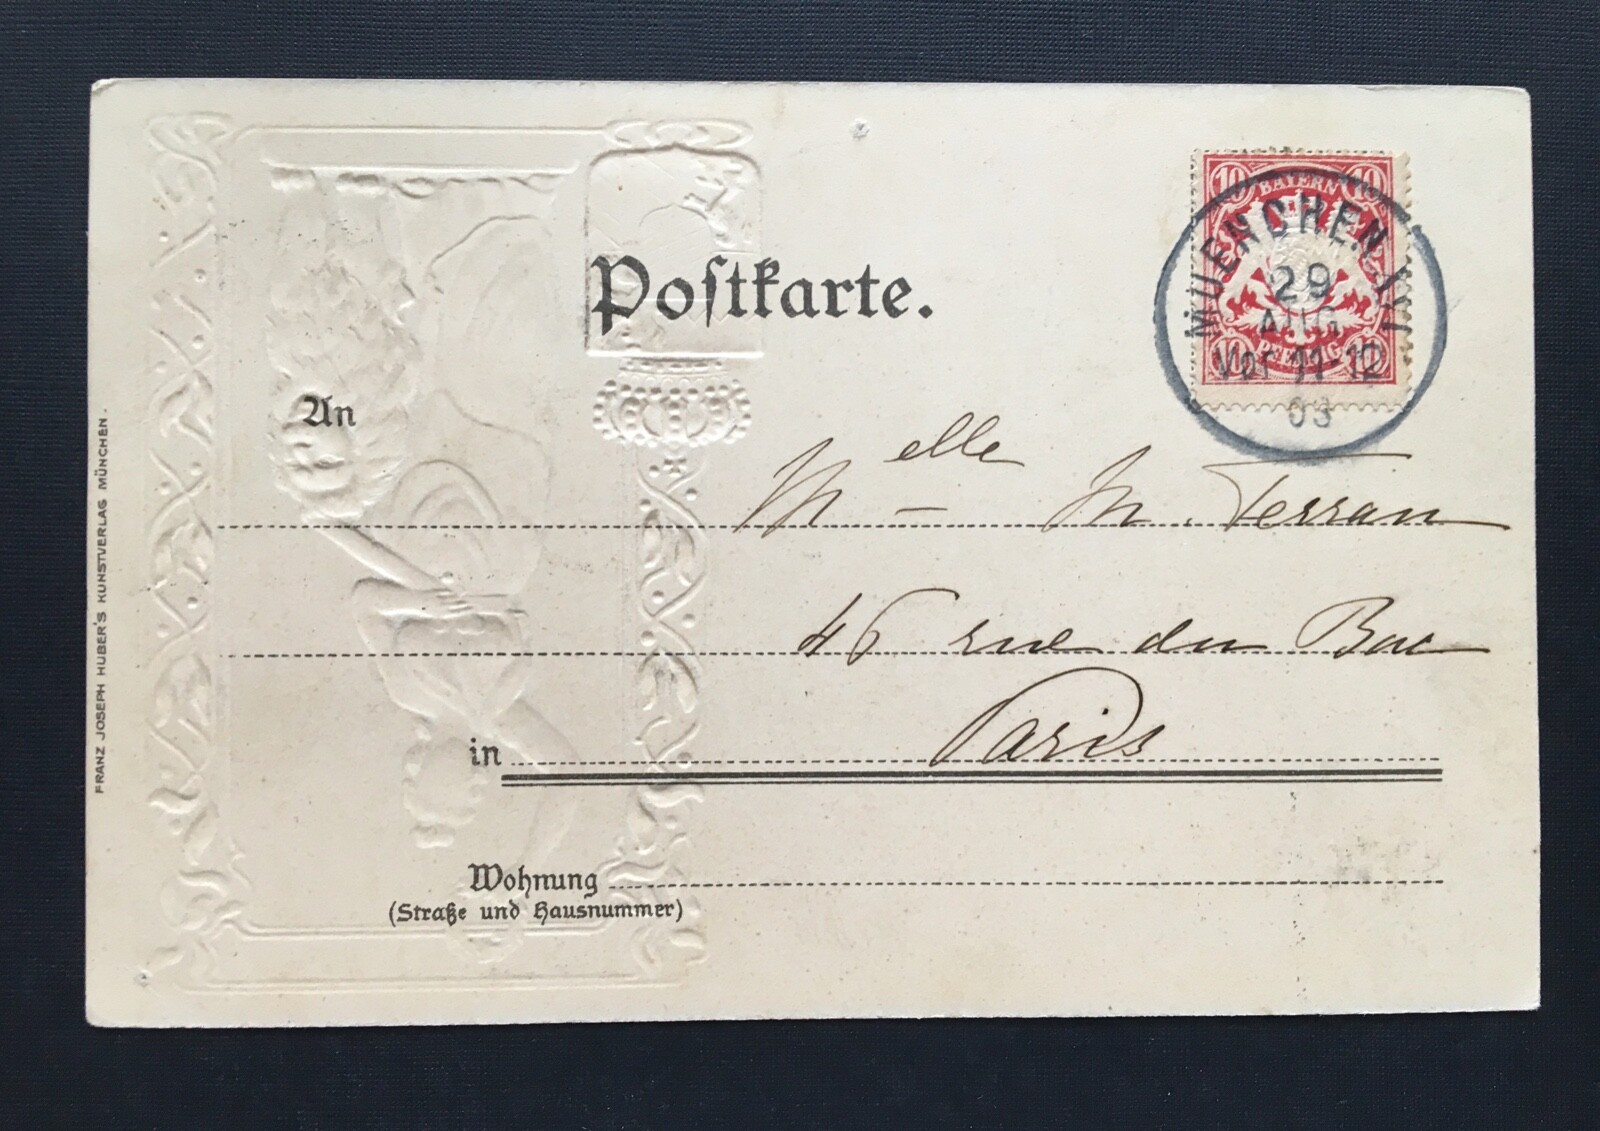 Postkarte.
10 BAYERN 10
10 PFENNIG 10
MUENCHEN
29
AUG
Vor 11-12
03
An
Melle M. Terran
46 rue du Bac
in Paris
Wohnung
(Straße und Hausnummer)
FRANZ JOSEPH HUBER'S KUNSTVERLAG MÜNCHEN.